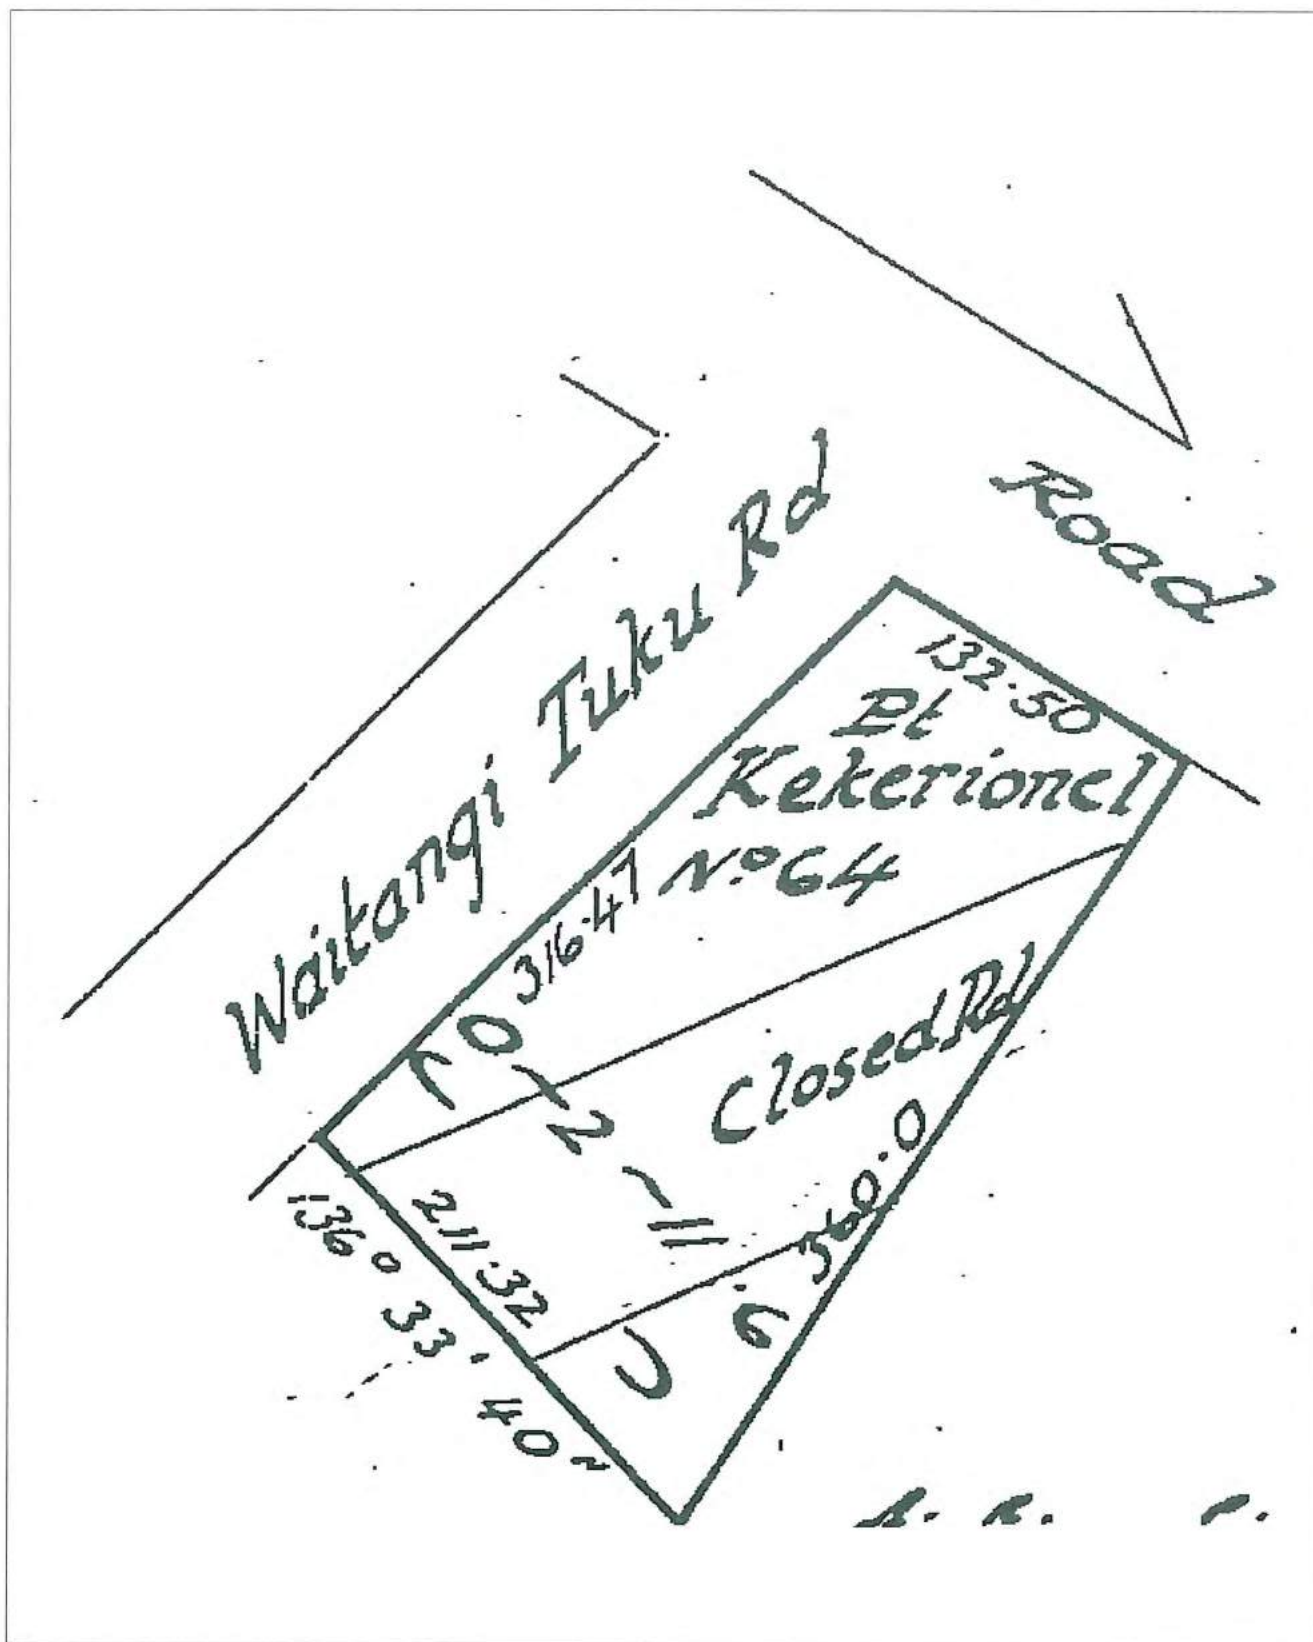 Road
Waitangi Tuku Rd
132·50
Pt
Kekerionel
No 64
316·47
Closed Rd
0-2-11·6
360·0
211·32
136° 33' 40"
A. R. P.